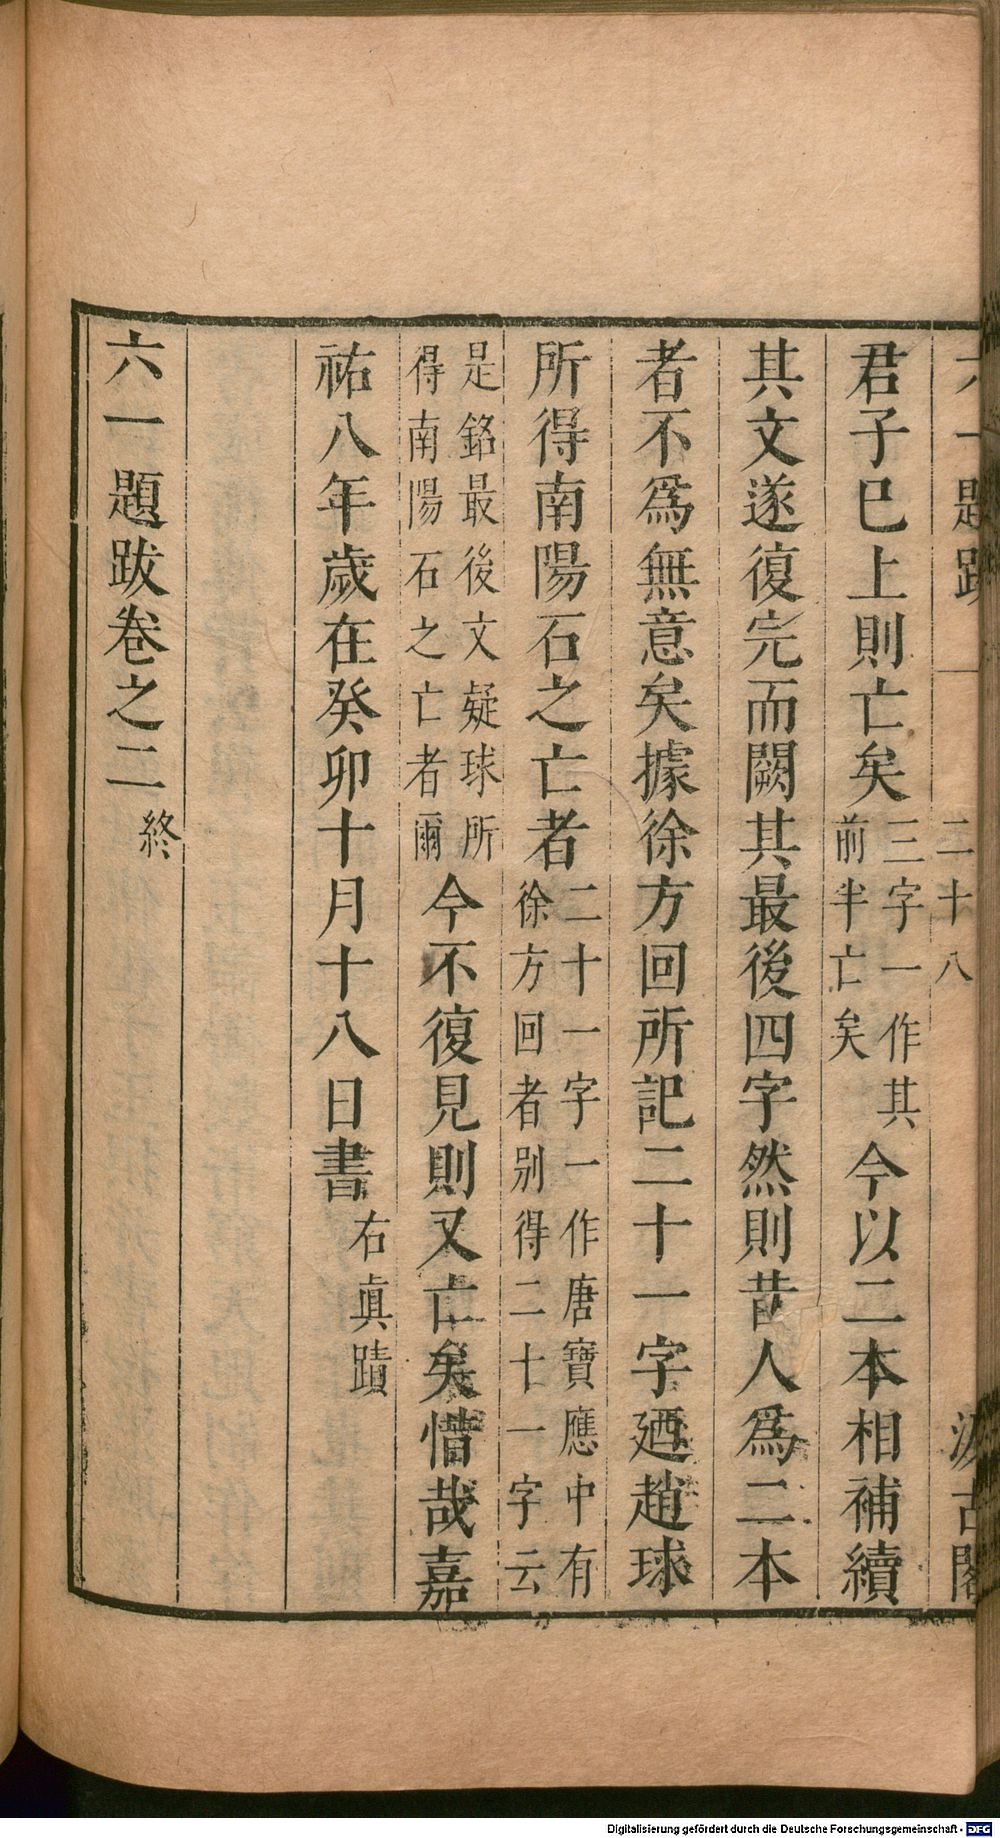 六一題跋 二十八 汲古閣
君子已上則亡矣三字一作其前半亡矣今以二本相補續
其文遂復完而闕其最後四字然則昔人爲二本
者不爲無意矣據徐方回所記二十一字廼趙球
所得南陽石之亡者二十一字一作唐寶應中有徐方回者别得二十一字云
是銘最後文疑球所得南陽石之亡者爾今不復見則又亡矣惜哉嘉
祐八年歲在癸卯十月十八日書右眞蹟
六一題跋卷之二終
Digitalisierung gefördert durch die Deutsche Forschungsgemeinschaft - DFG